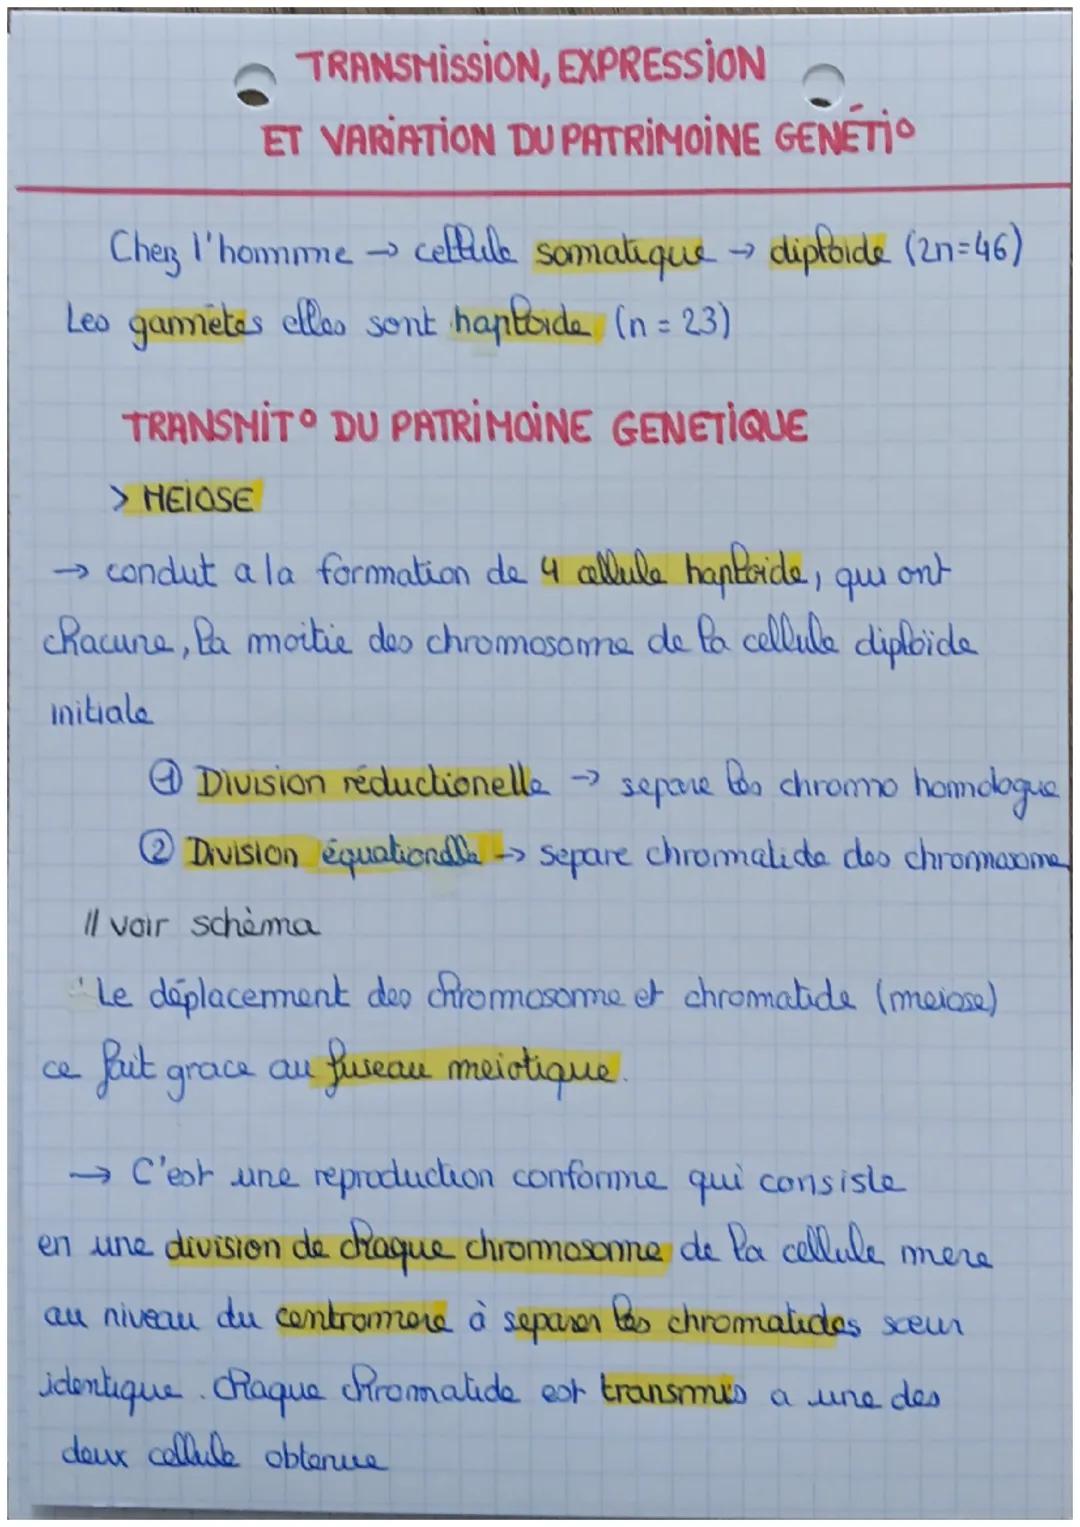 TRANSMISSION, EXPRESSION
ET VARIATION DU PATRIMOINE GENÉTI°
Chez l'homme → cellule somatique → diploide (2n=46)
Les gamètes elles sont haploide (n = 23)
TRANSMIT° DU PATRIMOINE GENETIQUE
> MEIOSE
→ condut a la formation de 4 cellule haploide, qui ont
chacune, la moitie des chromosome de la cellule diploïde
initiale
① Division réductionelle → separe les chromo homologue
② Division équationelle → separe chromatide des chromosome
// voir schèma
Le déplacement des chromosome et chromatide (meiose)
ce fait grace au fuseau meiotique.
→ C'est une reproduction conforme qui consiste
en une division de chaque chromosome de la cellule mere
au niveau du centromere à separer les chromatides sœur
identique. Chaque chromatide est transmis a une des
deux cellule obtenue